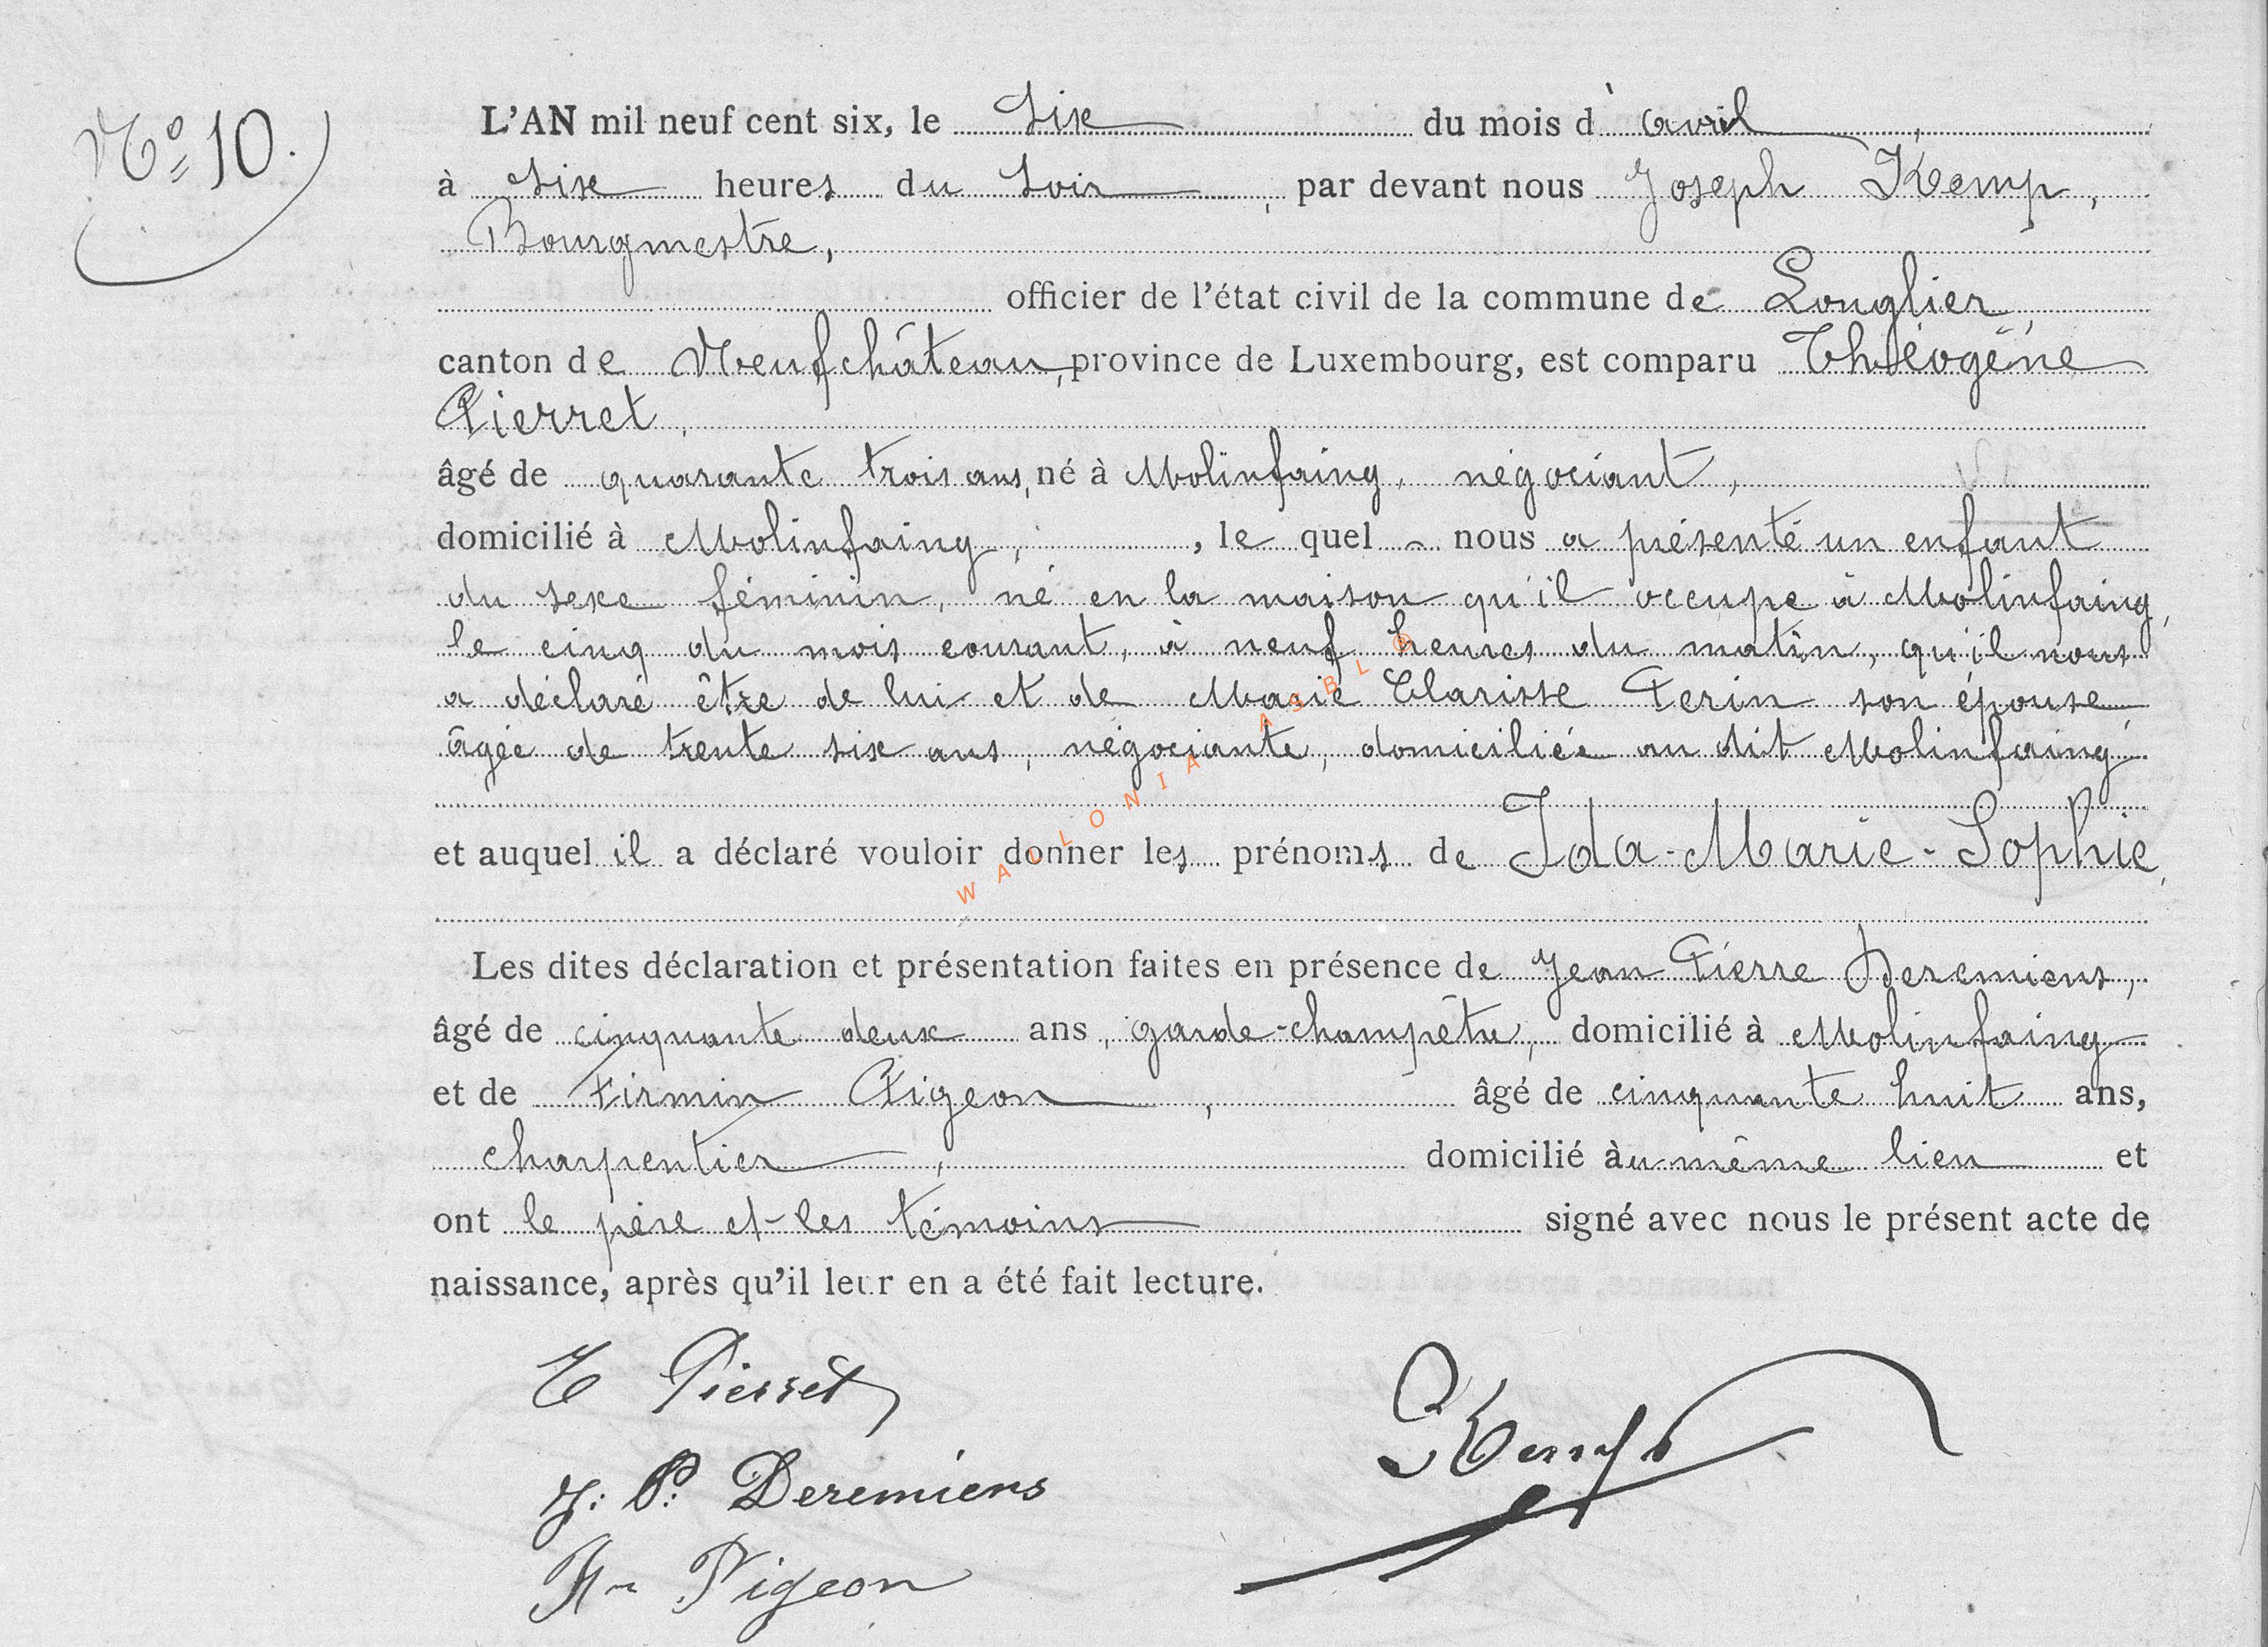 N° 10.
L'AN mil neuf cent six, le six du mois d'avril,
à six heures du soir, par devant nous Joseph Kemp,
Bourgmestre,
officier de l'état civil de la commune de Longlier,
canton de Neufchâteau, province de Luxembourg, est comparu Théogène
Pierret,
âgé de quarante trois ans, né à Molinfaing, négociant,
domicilié à Molinfaing, , le quel nous a présenté un enfant
du sexe féminin, né en la maison qu'il occupe à Molinfaing,
le cinq du mois courant, à neuf heures du matin, qu'il nous
a déclaré être de lui et de Marie Clarisse Perin son épouse
âgée de trente six ans, négociante, domiciliée au dit Molinfaing
et auquel il a déclaré vouloir donner les prénoms de Ida-Marie-Sophie,
WALLONIA ASBL ®
Les dites déclaration et présentation faites en présence de Jean Pierre Deremiens,
âgé de cinquante deux ans, garde-champêtre, domicilié à Molinfaing
et de Firmin Pigeon, âgé de cinquante huit ans,
charpentier, domicilié àu même lieu et
ont le père et les témoins signé avec nous le présent acte de
naissance, après qu'il leur en a été fait lecture.
T Pierret
J. Kemp
J: P: Deremiens
Fn Pigeon